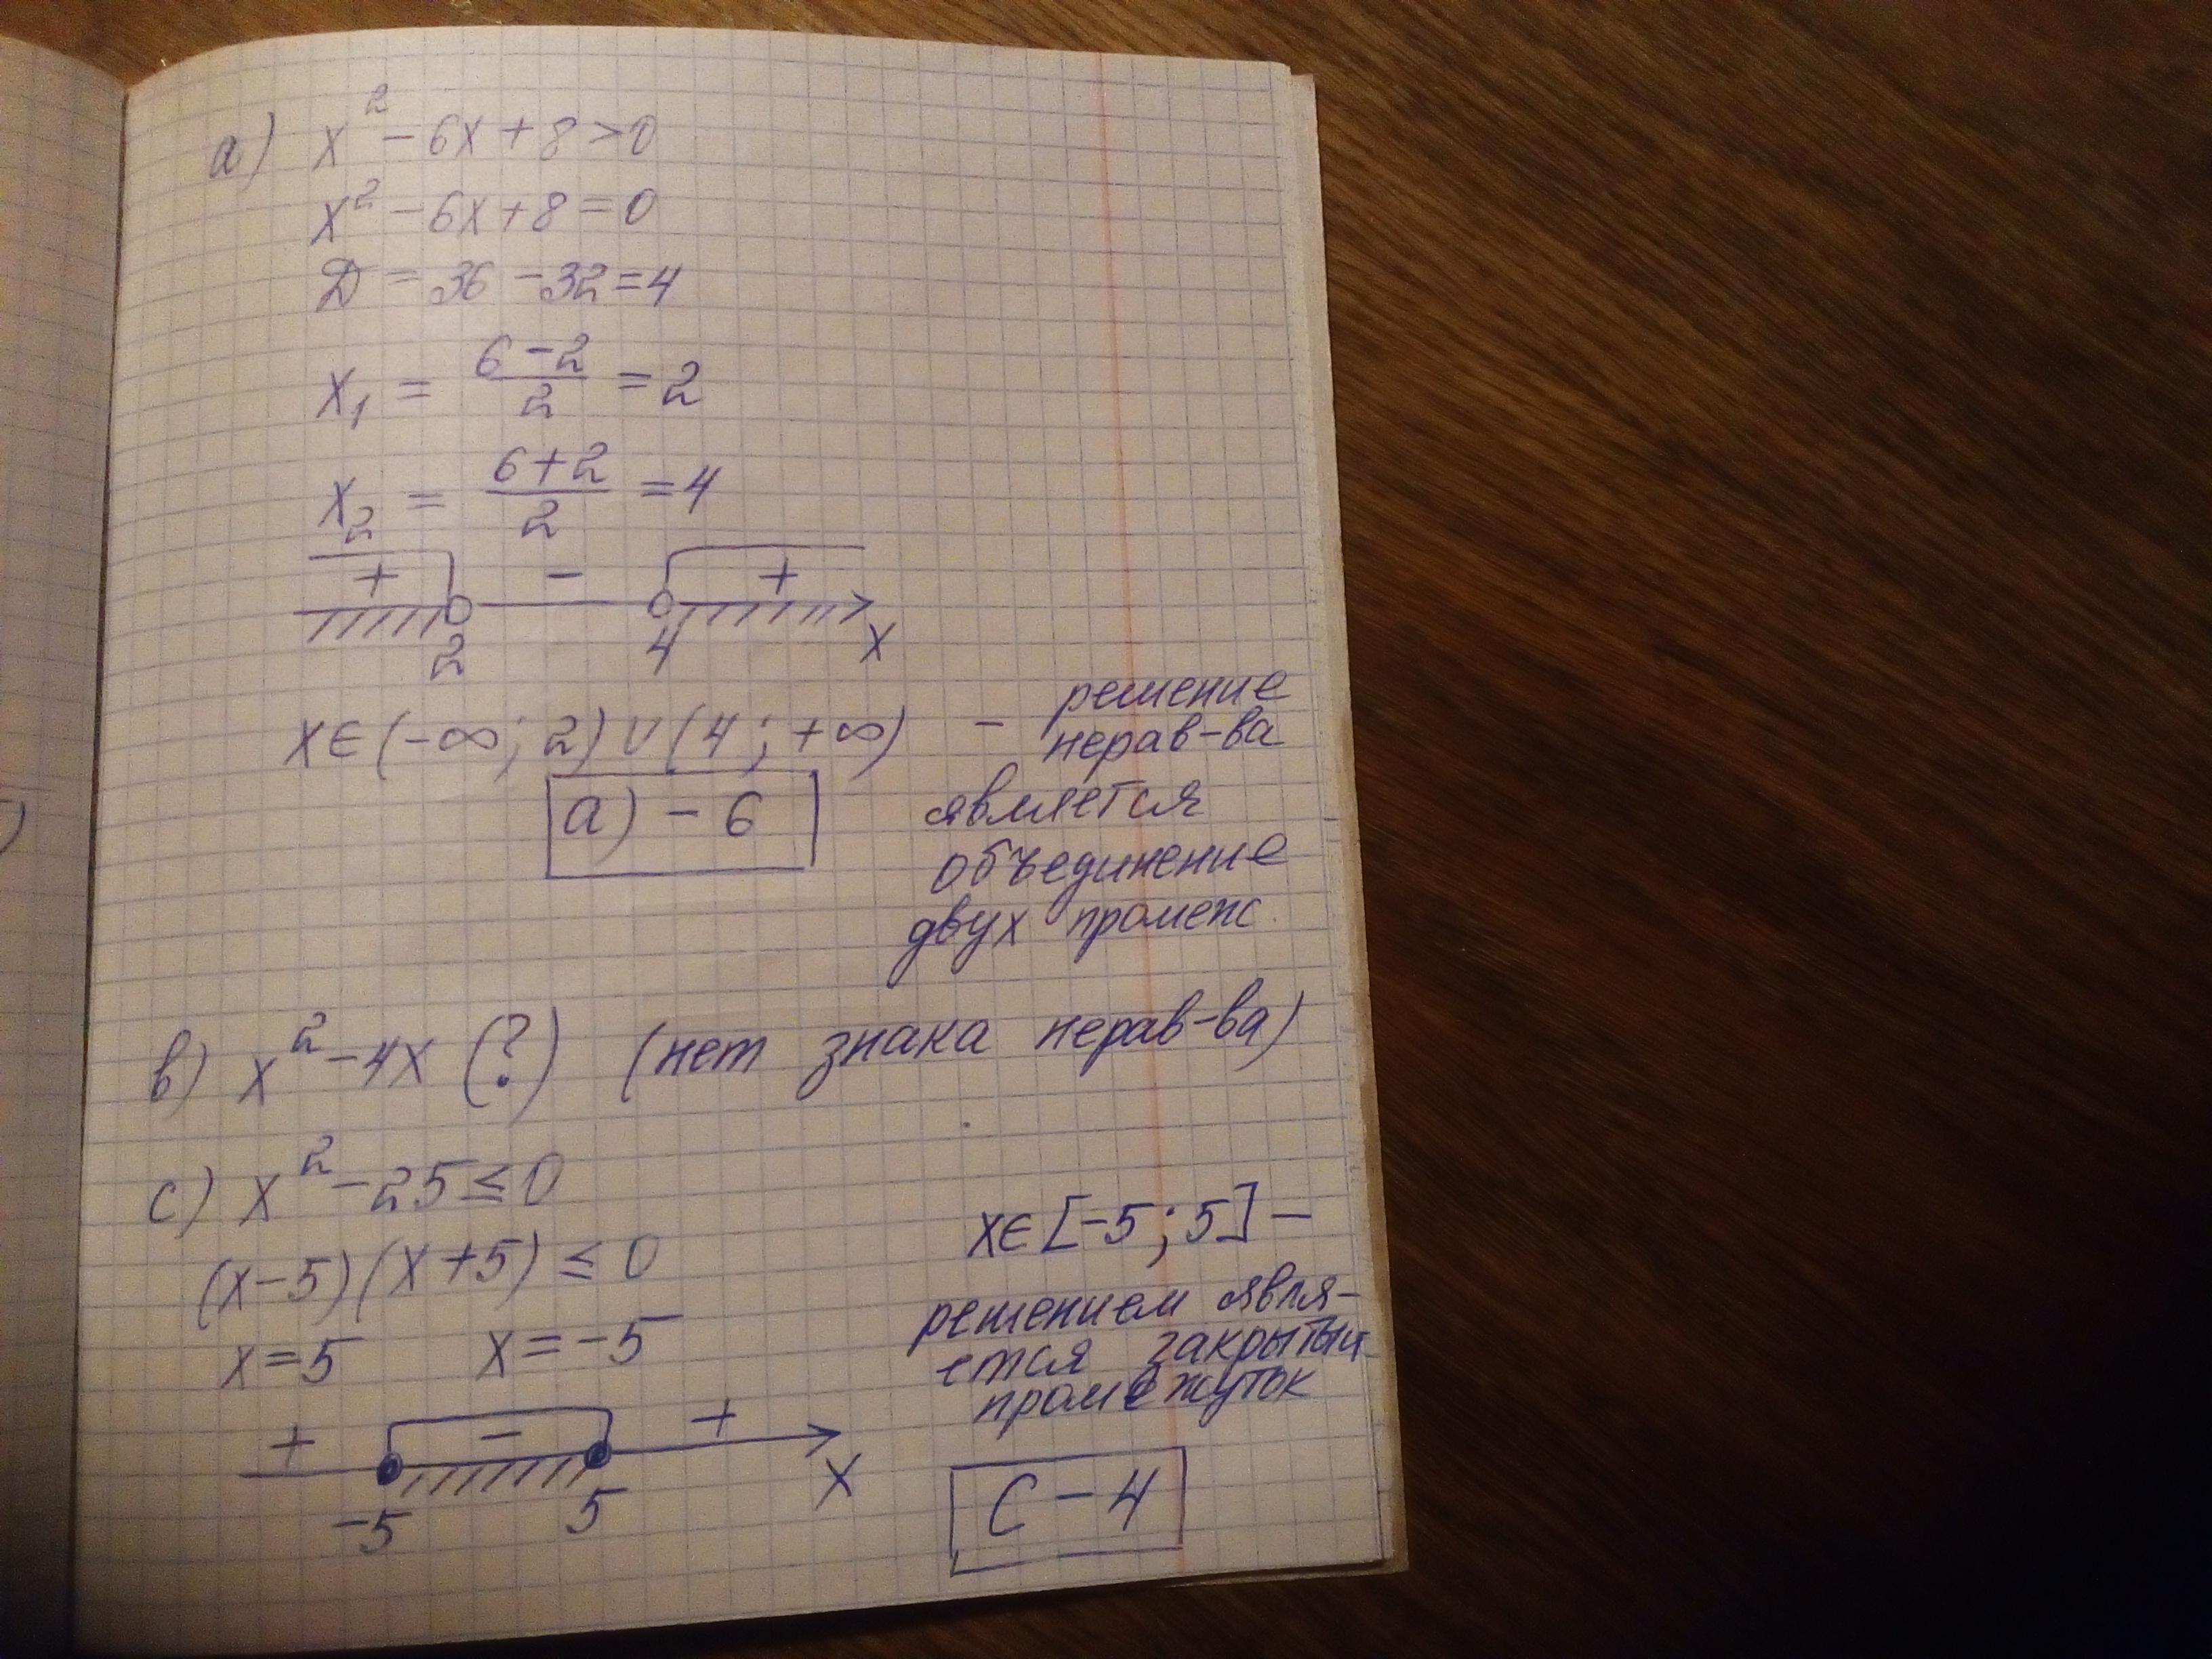 а) x² - 6x + 8 > 0
x² - 6x + 8 = 0
D = 36 - 32 = 4
x₁ = (6 - 2)/2 = 2
x₂ = (6 + 2)/2 = 4
+ - +
2 4 x
x ∈ (-∞; 2) ∪ (4; +∞) - решение
нерав-ва
является
объединение
двух промеж.
а) - 6
в) x² - 4x (?) (нет знака нерав-ва)
с) x² - 25 ≤ 0
(x - 5)(x + 5) ≤ 0
x = 5 x = -5
+ - +
-5 5 x
x ∈ [-5; 5] -
решением явля-
ется закрытый
промежуток
С - 4